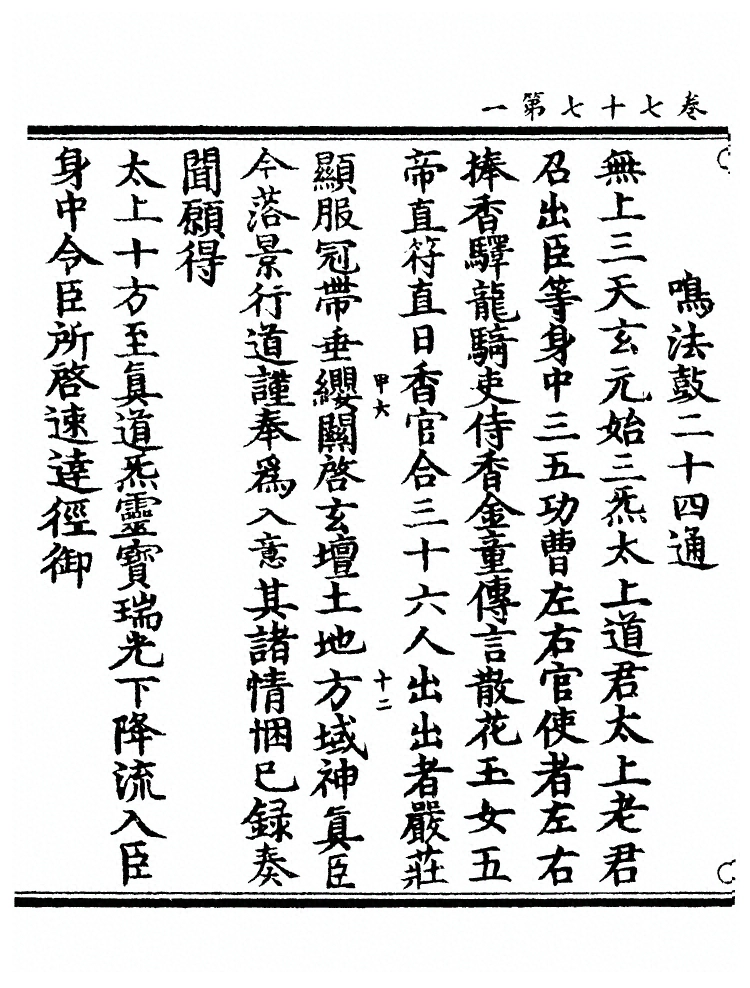 卷七十七第一
鳴法鼓二十四通
無上三天玄元始三炁太上道君太上老君
召出臣等身中三五功曹左右官使者左右
捧香驛龍騎吏侍香金童傳言散花玉女五
帝直符直日香官合三十六人出出者嚴莊
甲六
十二
顯服冠帶垂纓關啓玄壇土地方域神眞臣
今落景行道謹奉爲入意其諸情悃已録奏
聞願得
太上十方至眞道炁靈寶瑞光下降流入臣
身中令臣所啓速達徑御